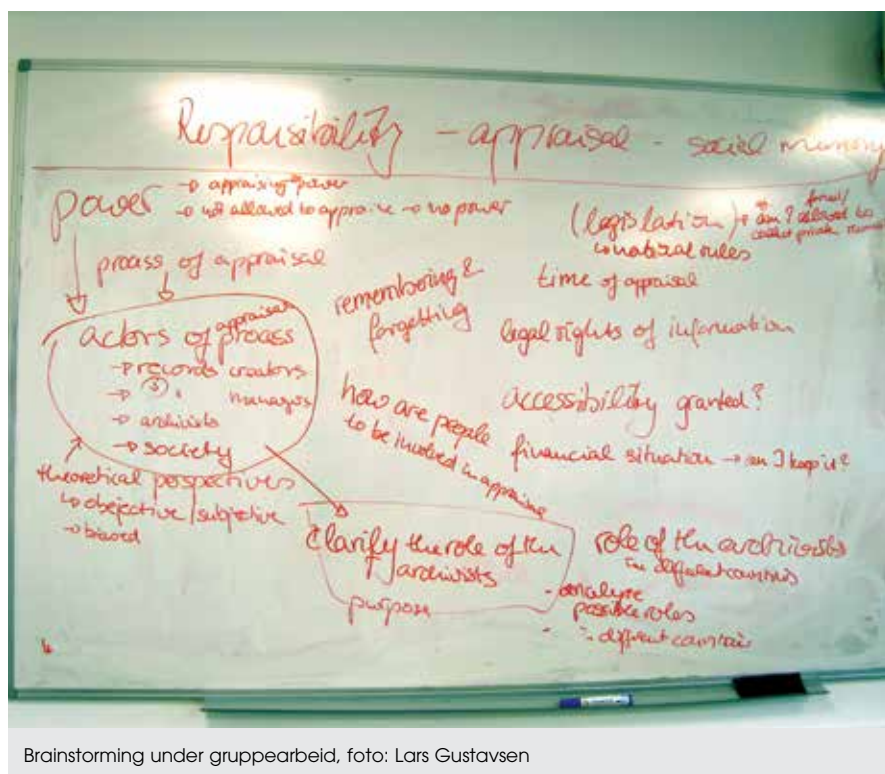 Responsibility - appraisal - social memory
power → appraising power
→ not allowed to appraise → no power
process of appraisal
actors of appraisal process
→ records creators
→ managers
→ archivists
→ society
theoretical perspectives
↳ objective/subjective
→ biased
remembering &
forgetting
how are people
to be involved in appraisal
clarify the role of the
archivists
purpose
(legislation) → am I allowed to
collect private
↳ national rules
time of appraisal
legal rights of information
accessibility granted?
financial situation → can I keep it?
role of the archivists
in different
- analyse
possible roles
- different
Brainstorming under gruppearbeid, foto: Lars Gustavsen